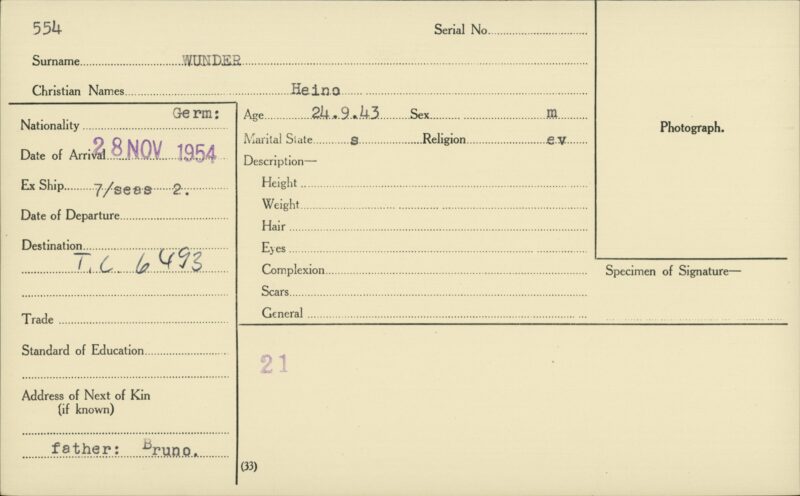 554
Serial No.
Surname WUNDER
Christian Names Heino
Nationality Germ:
Date of Arrival 28 NOV 1954
Ex Ship 7/seas 2.
Date of Departure
Destination
T.C. 6493
Trade
Standard of Education
Address of Next of Kin
(if known)
father: Bruno.
Age 24.9.43 Sex m
Marital State s Religion ev
Description—
Height
Weight
Hair
Eyes
Complexion
Scars
General
21
(33)
Photograph.
Specimen of Signature—